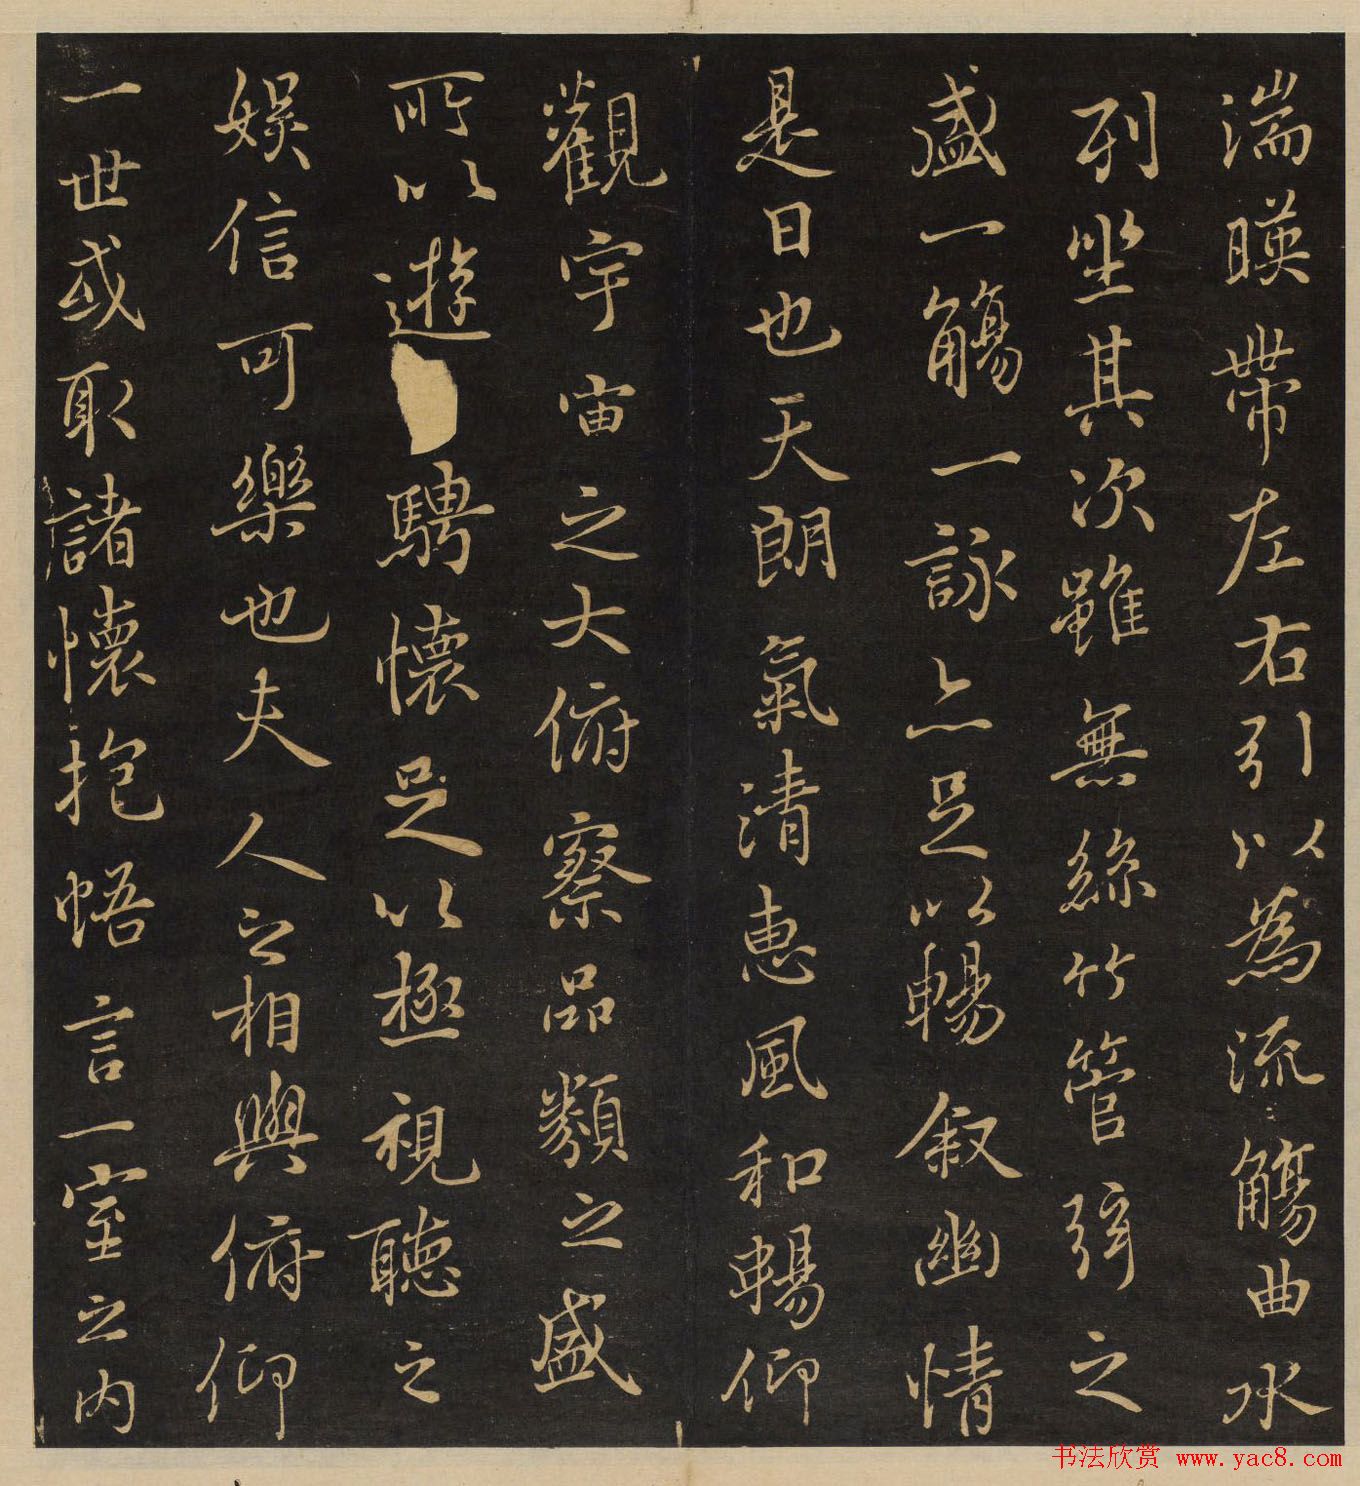 湍暎帶左右引以為流觴曲水
列坐其次雖無絲竹管弦之
盛一觴一詠亦足以暢叙幽情
是日也天朗氣清惠風和暢仰
觀宇宙之大俯察品類之盛
所以遊騁懷足以極視聽之
娛信可樂也夫人之相與俯仰
一世或取諸懷抱悟言一室之內
书法欣赏 www.yac8.com